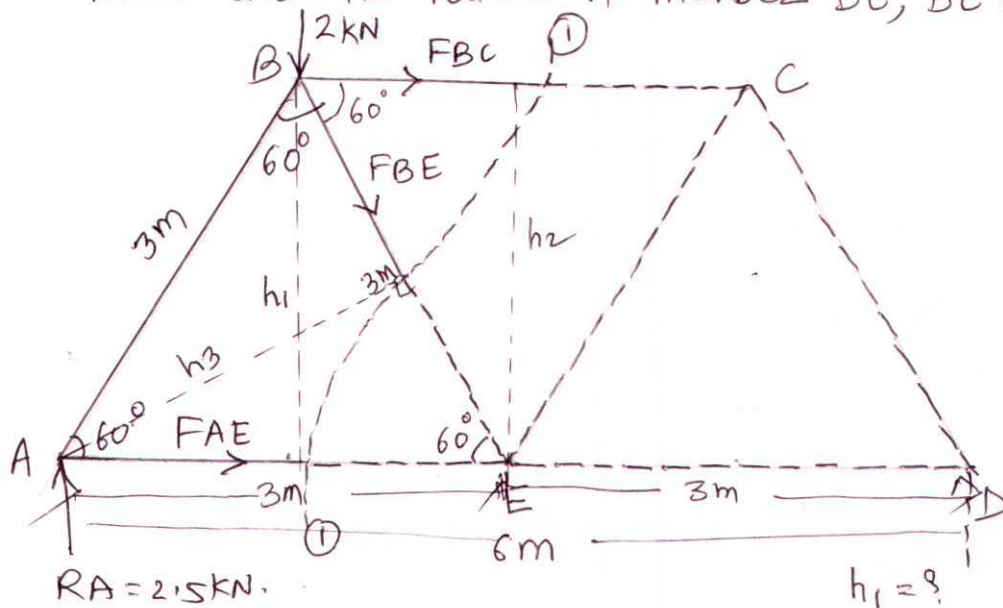 member BC, BE
2KN
①
B
FBC
C
60°
60°
FBE
3m
h1
h2
3m
h3
60°
FAE
60°
A
3m
E
3m
D
①
6m
RA = 2.5KN.
h1 = ?